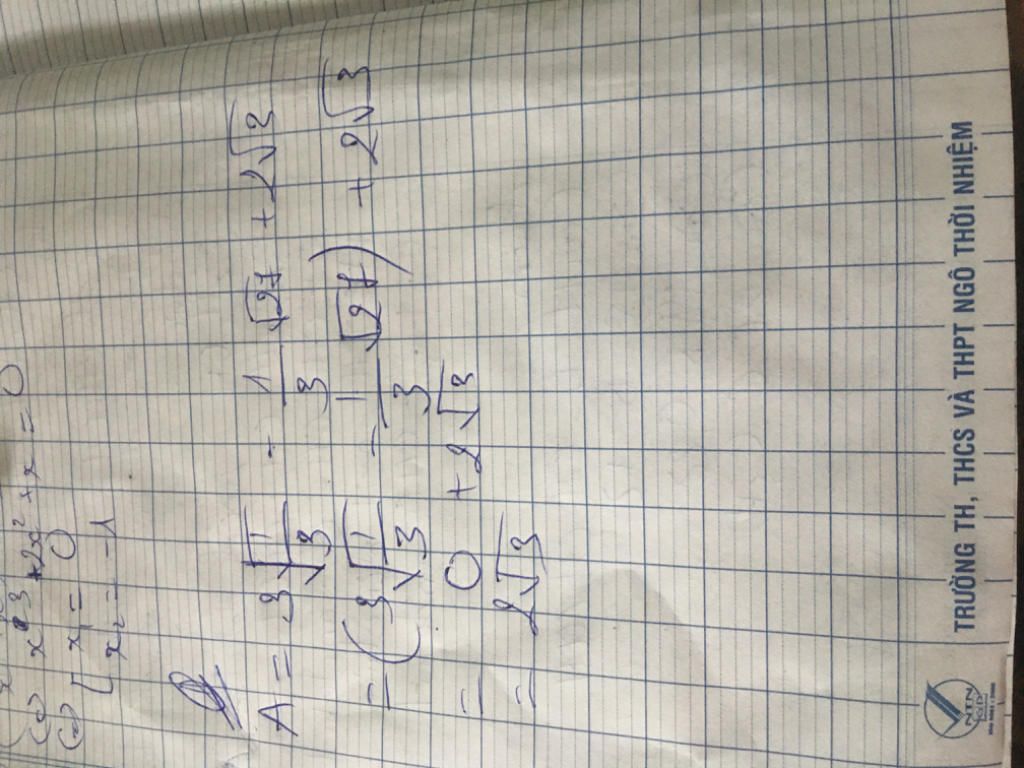 ⇔ x³ + 2x² + x = 0
⇔ [ x₁ = 0
x₂ = -1
A = 3√(1/3) - 1/3 √27 + 2√3
= (3√(1/3) - 1/3 √27) + 2√3
= 0 + 2√3
= 2√3
TRƯỜNG TH, THCS VÀ THPT NGÔ THỜI NHIỆM
NTN